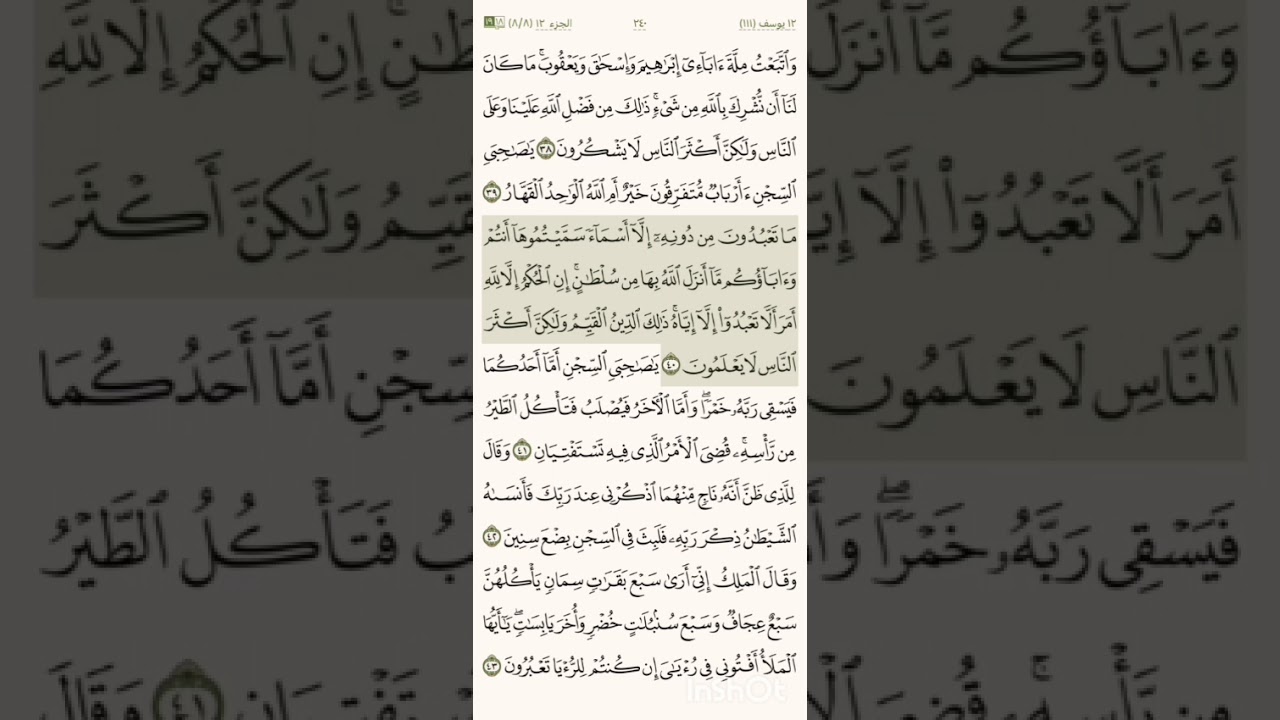 ١٢ يوسف (١١١) ٢٤٠ الجزء ١٢ (٨/٨)
وَٱتَّبَعْتُ مِلَّةَ ءَابَآءِىٓ إِبْرَٰهِيمَ وَإِسْحَٰقَ وَيَعْقُوبَ ۚ مَا كَانَ
لَنَآ أَن نُّشْرِكَ بِٱللَّهِ مِن شَىْءٍ ۚ ذَٰلِكَ مِن فَضْلِ ٱللَّهِ عَلَيْنَا وَعَلَى
ٱلنَّاسِ وَلَٰكِنَّ أَكْثَرَ ٱلنَّاسِ لَا يَشْكُرُونَ ٣٨ يَٰصَٰحِبَىِ
ٱلسِّجْنِ ءَأَرْبَابٌ مُّتَفَرِّقُونَ خَيْرٌ أَمِ ٱللَّهُ ٱلْوَٰحِدُ ٱلْقَهَّارُ ٣٩
مَا تَعْبُدُونَ مِن دُونِهِۦٓ إِلَّآ أَسْمَآءً سَمَّيْتُمُوهَآ أَنتُمْ
وَءَابَآؤُكُم مَّآ أَنزَلَ ٱللَّهُ بِهَا مِن سُلْطَٰنٍ ۚ إِنِ ٱلْحُكْمُ إِلَّا لِلَّهِ
أَمَرَ أَلَّا تَعْبُدُوٓا۟ إِلَّآ إِيَّاهُ ۚ ذَٰلِكَ ٱلدِّينُ ٱلْقَيِّمُ وَلَٰكِنَّ أَكْثَرَ
ٱلنَّاسِ لَا يَعْلَمُونَ ٤٠ يَٰصَٰحِبَىِ ٱلسِّجْنِ أَمَّآ أَحَدُكُمَا
فَيَسْقِى رَبَّهُۥ خَمْرًا ۖ وَأَمَّا ٱلْـَٔاخَرُ فَيُصْلَبُ فَتَأْكُلُ ٱلطَّيْرُ
مِن رَّأْسِهِۦ ۚ قُضِىَ ٱلْأَمْرُ ٱلَّذِى فِيهِ تَسْتَفْتِيَانِ ٤١ وَقَالَ
لِلَّذِى ظَنَّ أَنَّهُۥ نَاجٍ مِّنْهُمَا ٱذْكُرْنِى عِندَ رَبِّكَ فَأَنسَىٰهُ
ٱلشَّيْطَٰنُ ذِكْرَ رَبِّهِۦ فَلَبِثَ فِى ٱلسِّجْنِ بِضْعَ سِنِينَ ٤٢
وَقَالَ ٱلْمَلِكُ إِنِّىٓ أَرَىٰ سَبْعَ بَقَرَٰتٍ سِمَانٍ يَأْكُلُهُنَّ
سَبْعٌ عِجَافٌ وَسَبْعَ سُنۢبُلَٰتٍ خُضْرٍ وَأُخَرَ يَابِسَٰتٍ ۖ يَٰٓأَيُّهَا
ٱلْمَلَأُ أَفْتُونِى فِى رُءْيَٰىَ إِن كُنتُمْ لِلرُّءْيَا تَعْبُرُونَ ٤٣
InShOt